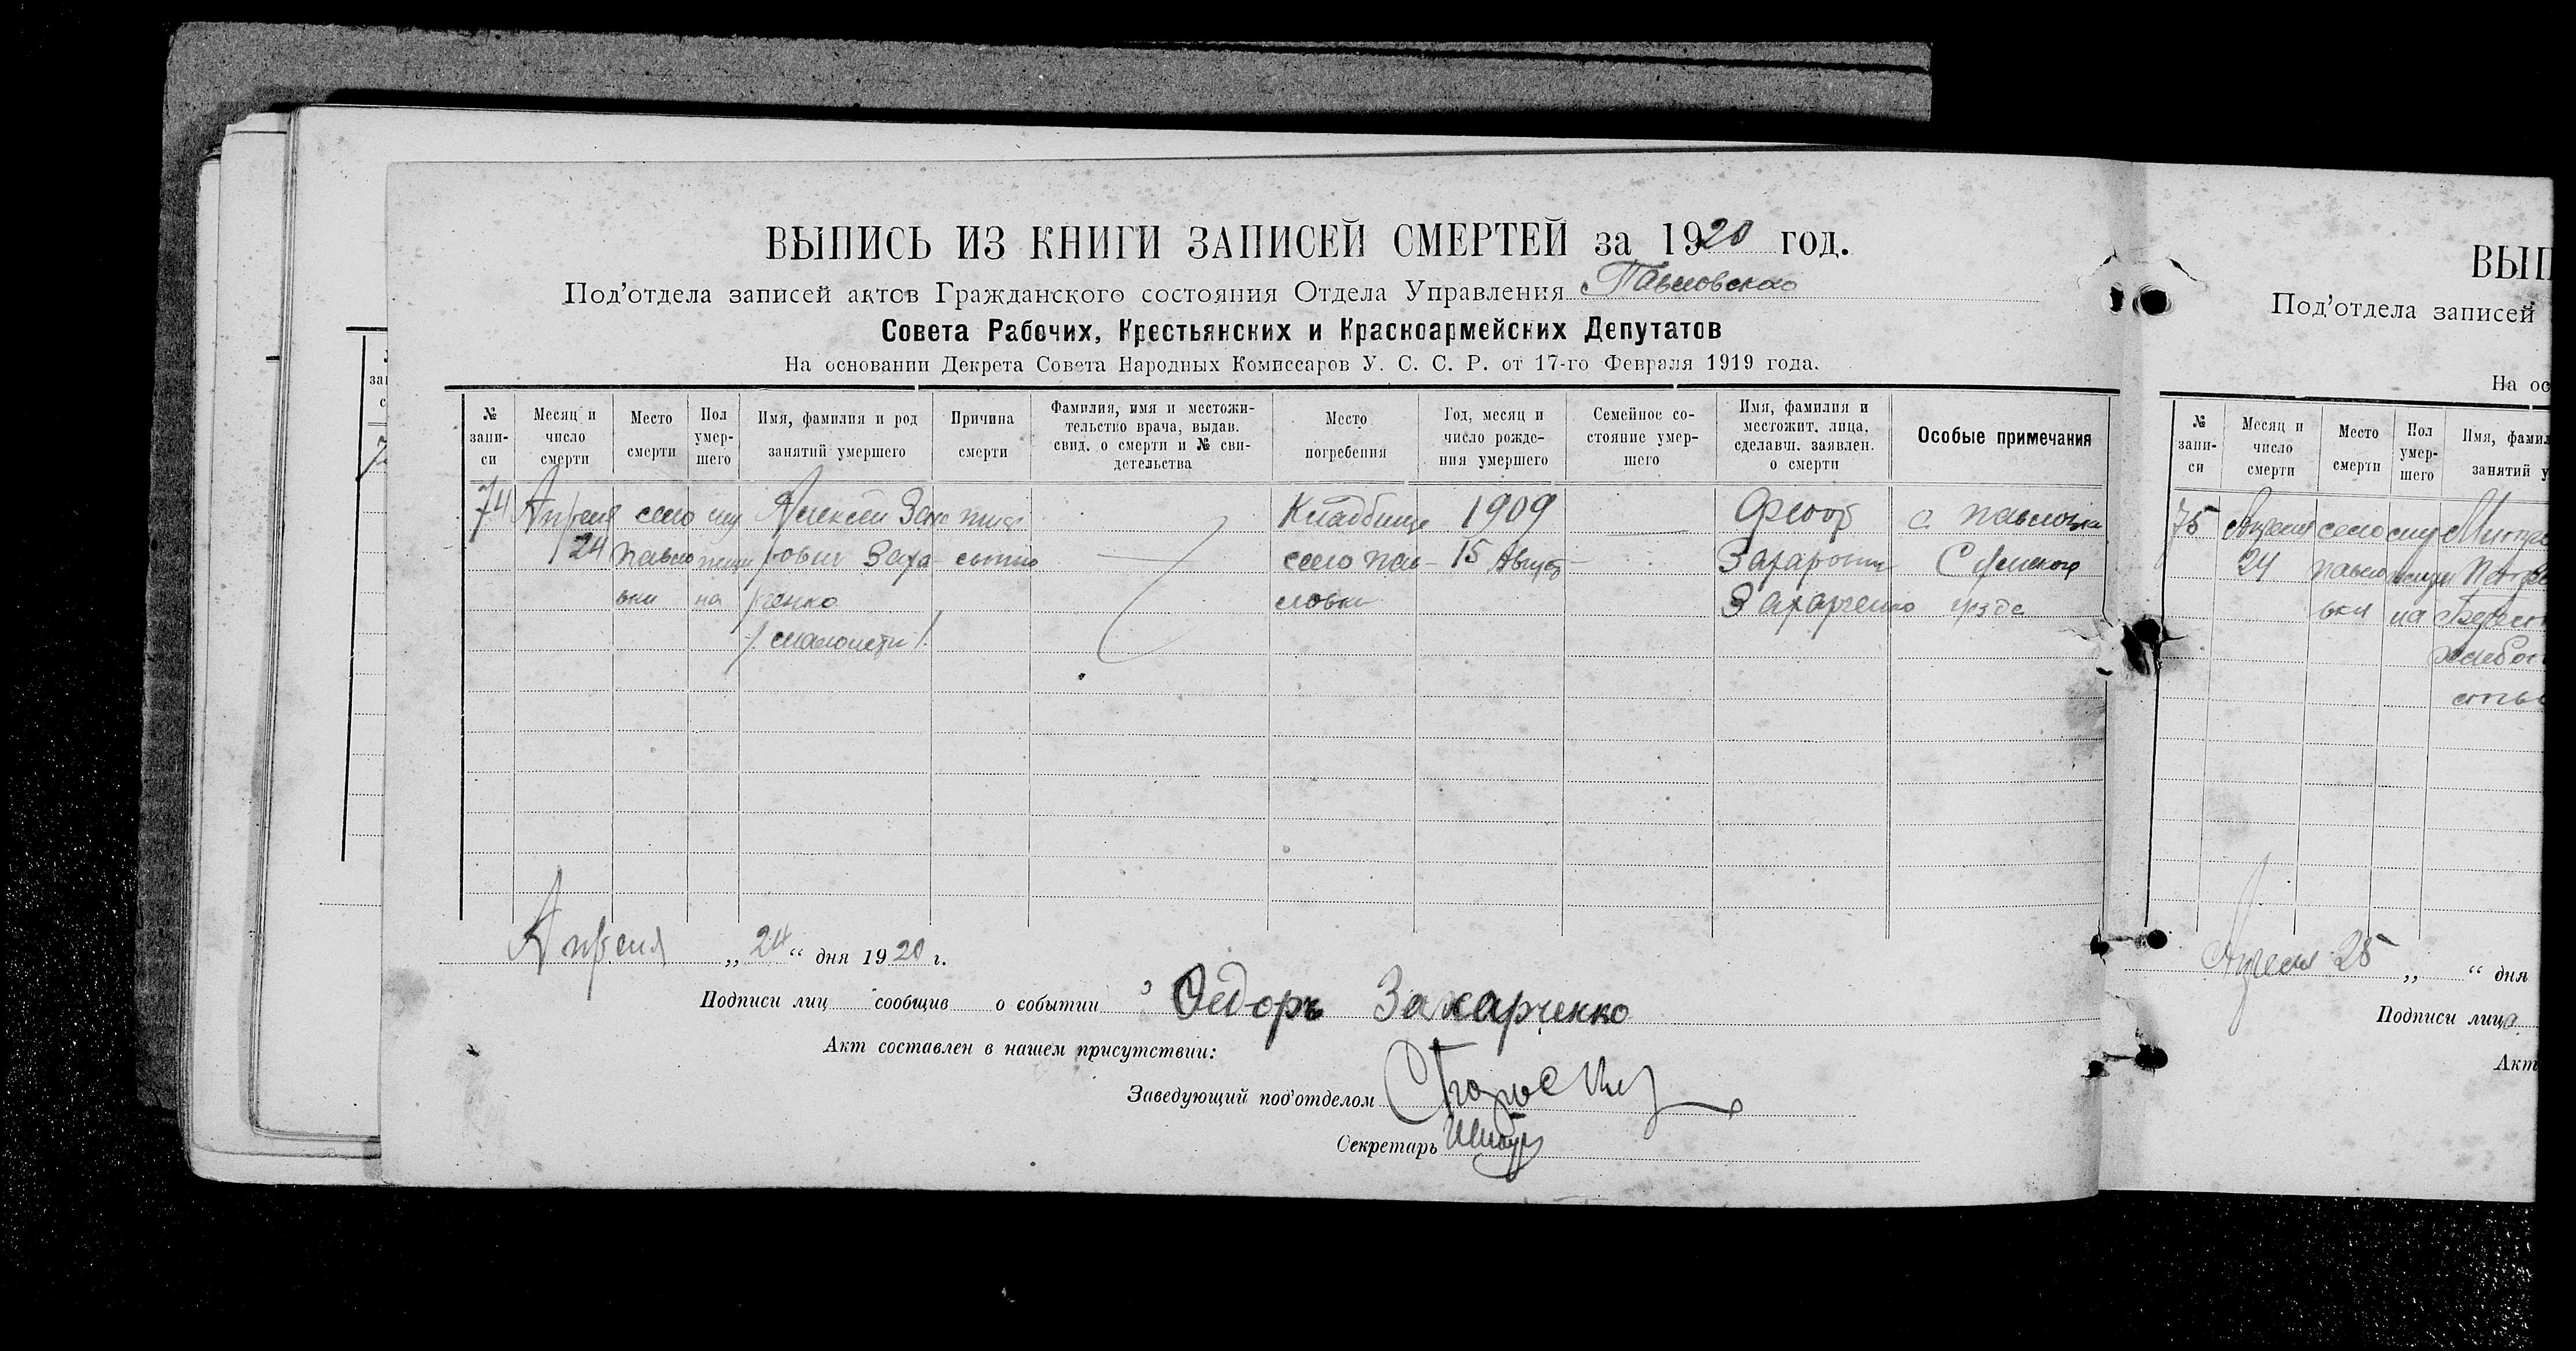 ВЫПИСЬ ИЗ КНИГИ ЗАПИСЕЙ СМЕРТЕЙ за 1920 год.
Под'отдела записей актов Гражданского состояния Отдела Управления Павловского
Совета Рабочих, Крестьянских и Красноармейских Депутатов
На основании Декрета Совета Народных Комиссаров У. С. С. Р. от 17-го Февраля 1919 года.
№ запи-си
Месяц и число смерти
Место смерти
Пол умер-шего
Имя, фамилия и род занятий умершего
Причина смерти
Фамилия, имя и местожи-тельство врача, выдав. свид. о смерти и № сви-детельства
Место погребения
Год, месяц и число рожде-ния умершего
Семейное со-стояние умер-шего
Имя, фамилия и местожит. лица, сделавш. заявлен. о смерти
Особые примечания
74
Апреля
24
село
Павло
вки
Алексей Заха
рович Заха
рченко
Кладбище
село Пав-
ловки
1909
15 Август
Федор
Захарович
Захарченко
с. Павловки
Сумского
уезда
Апреля „ 24 “ дня 1920 г.
Подписи лиц сообщив о событии Федоръ Захарченко
Акт составлен в нашем присутствии:
Заведующий под'отделом
Секретарь
ВЫП
Под'отдела записей
На ос
№ запи-си
Месяц и число смерти
Место смерти
Пол умер-шего
Имя, фамил
занятий у
75
Апреля
24
село
Павло
вки
Апреля 25 „ “ дня
Подписи лица
Акт